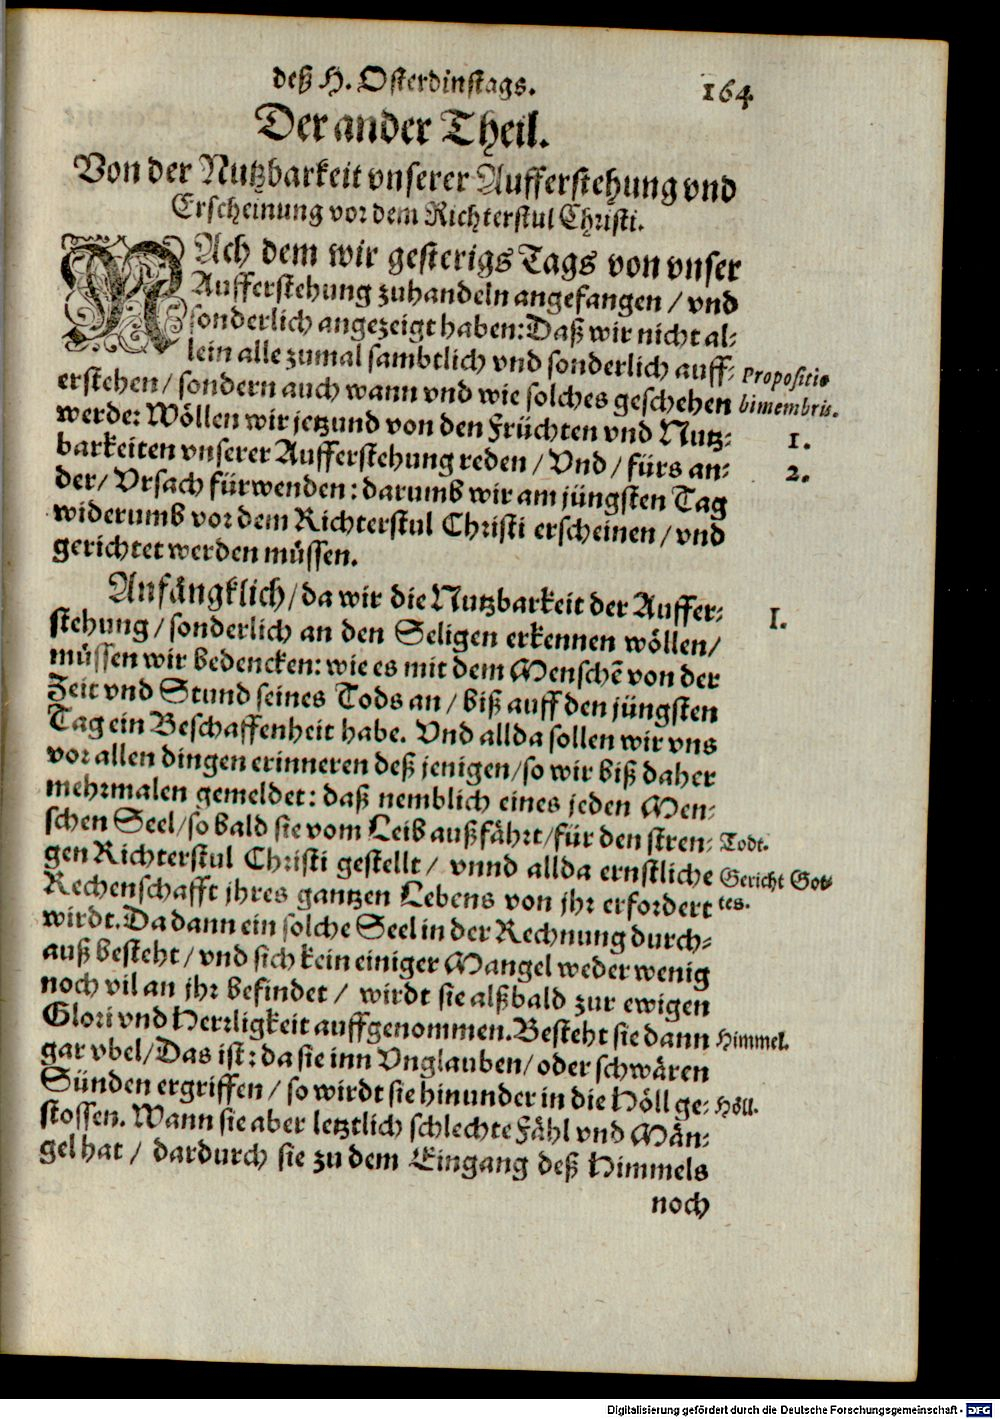 deß H. Osterdinstags. 164
Der ander Theil.
Von der Nutzbarkeit vnserer Aufferstehung vnd
Erscheinung vor dem Richterstul Christi.
NAch dem wir gesterigs Tags von vnser
Aufferstehung zuhandeln angefangen / vnd
sonderlich angezeigt haben: Daß wir nicht al-
lein alle zumal sambtlich vnd sonderlich auff- Propositio
erstehen / sondern auch wann vnd wie solches geschehen bimembris.
werde: Wöllen wir jetzund von den Früchten vnd Nutz- 1.
barkeiten vnserer Aufferstehung reden / Vnd / fürs an- 2.
der / Vrsach fürwenden: darumb wir am jüngsten Tag
widerumb vor dem Richterstul Christi erscheinen / vnd
gerichtet werden müssen.
Anfängklich / da wir die Nutzbarkeit der Auffer- I.
stehung / sonderlich an den Seligen erkennen wöllen /
müssen wir bedencken: wie es mit dem Menschẽ von der
Zeit vnd Stund seines Tods an / biß auff den jüngsten
Tag ein Beschaffenheit habe. Vnd allda sollen wir vns
vor allen dingen erinneren deß jenigen / so wir biß daher
mehrmalen gemeldet: daß nemblich eines jeden Men-
schen Seel / so bald sie vom Leib außfährt / für den stren- Todt.
gen Richterstul Christi gestellt / vnnd allda ernstliche Gericht Got-
Rechenschafft jhres gantzen Lebens von jhr erfordert tes.
wirdt. Da dann ein solche Seel in der Rechnung durch-
auß besteht / vnd sich kein einiger Mangel weder wenig
noch vil an jhr befindet / wirdt sie alßbald zur ewigen
Glori vnd Herrligkeit auffgenommen. Besteht sie dann Himmel.
gar vbel / Das ist: da sie inn Vnglauben / oder schwären
Sünden ergriffen / so wirdt sie hinunder in die Höll ge- Höll.
stossen. Wann sie aber letztlich schlechte Fähl vnd Män-
gel hat / dardurch sie zu dem Eingang deß Himmels
noch
Digitalisierung gefördert durch die Deutsche Forschungsgemeinschaft - DFG